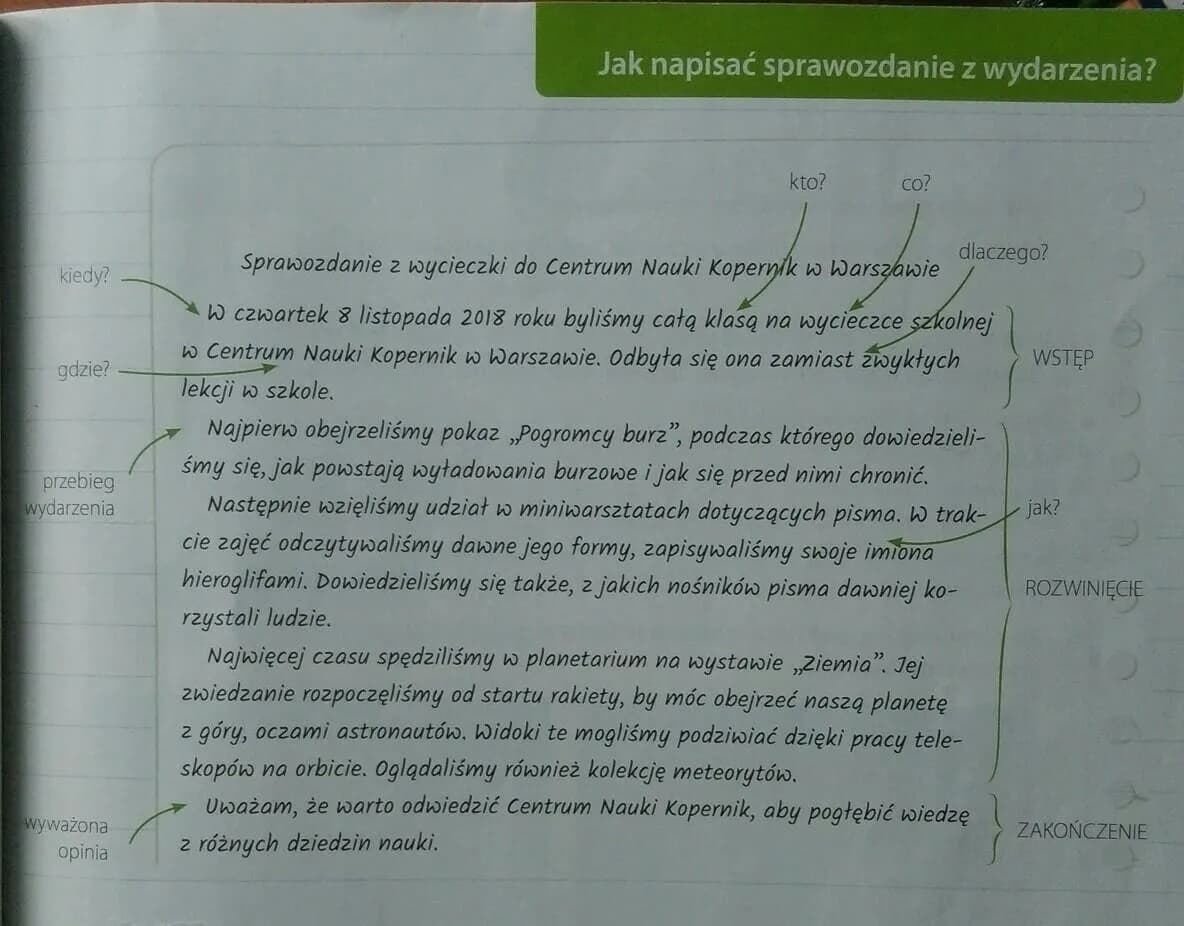 Jak napisać sprawozdanie z wydarzenia?
kto?
co?
dlaczego?
kiedy?
Sprawozdanie z wycieczki do Centrum Nauki Kopernik w Warszawie
W czwartek 8 listopada 2018 roku byliśmy całą klasą na wycieczce szkolnej
w Centrum Nauki Kopernik w Warszawie. Odbyła się ona zamiast zwykłych
WSTĘP
gdzie?
lekcji w szkole.
Najpierw obejrzeliśmy pokaz „Pogromcy burz”, podczas którego dowiedzieli-
śmy się, jak powstają wyładowania burzowe i jak się przed nimi chronić.
przebieg
wydarzenia
Następnie wzięliśmy udział w miniwarsztatach dotyczących pisma. W trak-
jak?
cie zajęć odczytywaliśmy dawne jego formy, zapisywaliśmy swoje imiona
hieroglifami. Dowiedzieliśmy się także, z jakich nośników pisma dawniej ko-
ROZWINIĘCIE
rzystali ludzie.
Najwięcej czasu spędziliśmy w planetarium na wystawie „Ziemia”. Jej
zwiedzanie rozpoczęliśmy od startu rakiety, by móc obejrzeć naszą planetę
z góry, oczami astronautów. Widoki te mogliśmy podziwiać dzięki pracy tele-
skopów na orbicie. Oglądaliśmy również kolekcję meteorytów.
Uważam, że warto odwiedzić Centrum Nauki Kopernik, aby pogłębić wiedzę
z różnych dziedzin nauki.
ZAKOŃCZENIE
wyważona
opinia